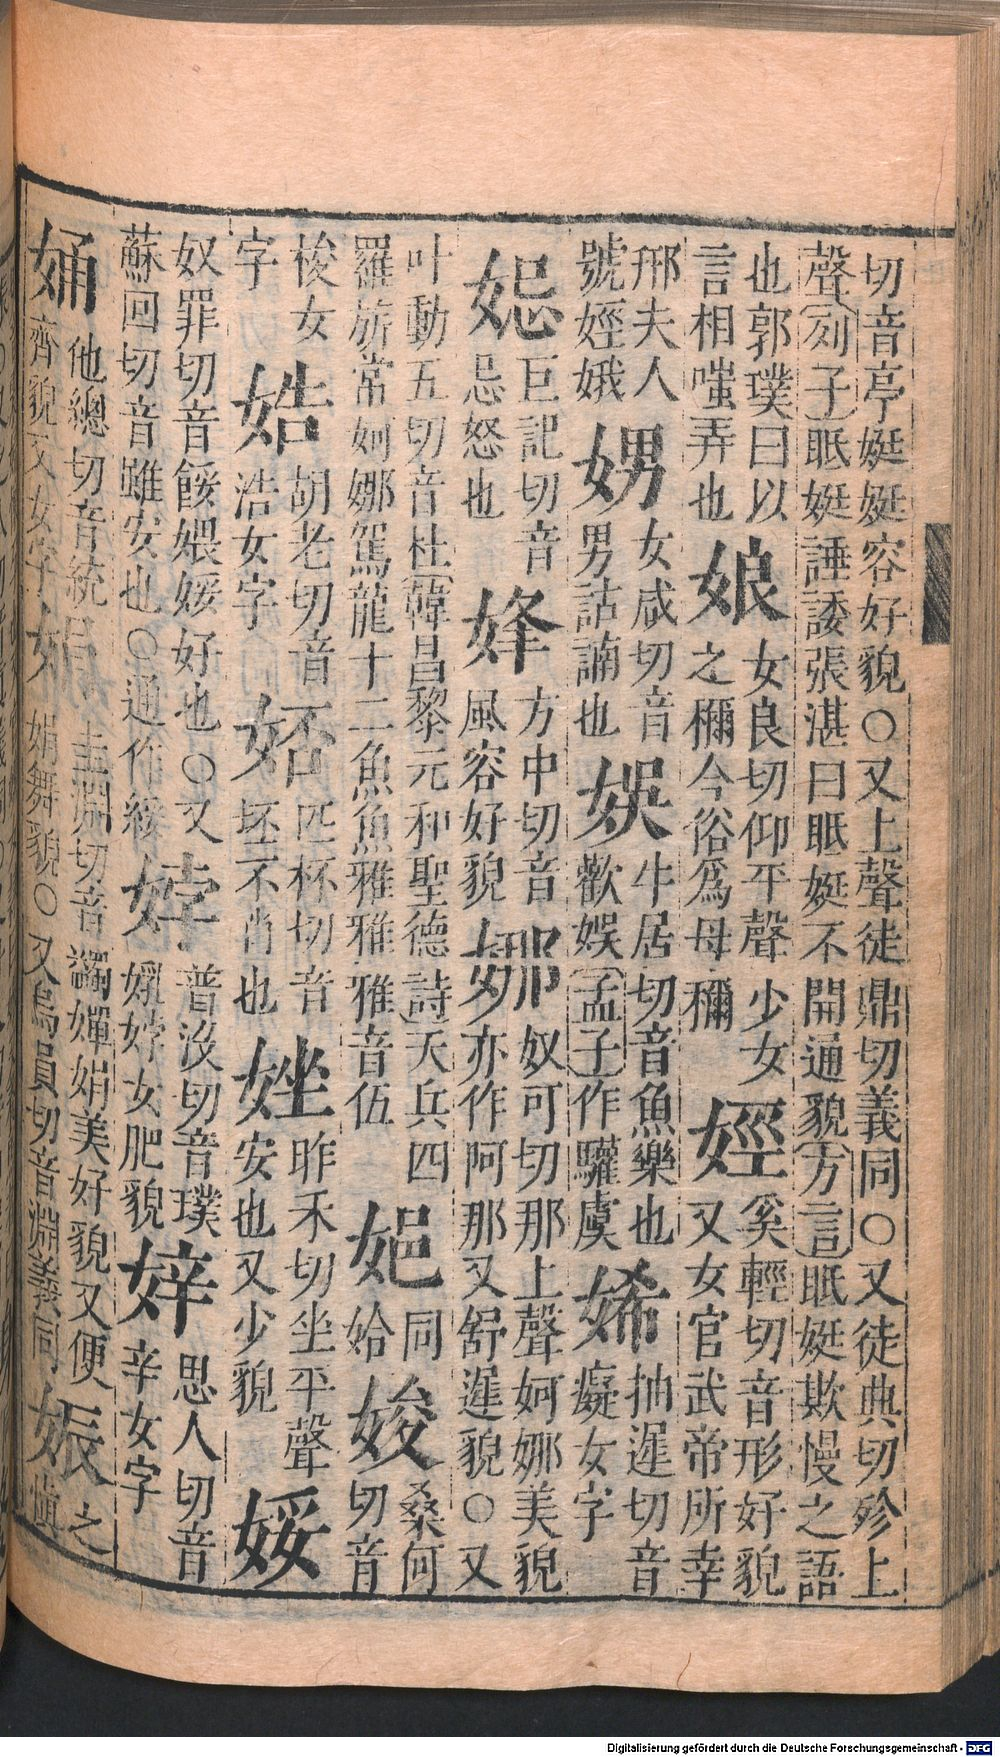 切音亭娗娗容好貌○又上聲徒鼎切義同○又徒典切殄上
聲列子眠娗諈諉張湛曰眠娗不開通貌方言眠娗欺慢之語
也郭璞曰以言相嗤弄也 娘 女良切仰平聲少女之穪今俗爲母穪 娙 奚輕切音形好貌又女官武帝所幸
邢夫人號娙娥 娚 女咸切音男詀諵也 娛 牛居切音魚樂也歡娛孟子作驩虞 㛓 抽遲切音癡女字
巨記切音忌怒也 㛔 方中切音風容好貌 娜 奴可切那上聲妸娜美貌亦作阿那又舒遲貌○又
叶動五切音杜韓昌黎元和聖德詩天兵四羅旂常妸娜駕龍十二魚魚雅雅雅音伍 㛕 同姶 㛖 桑何切音
梭女字 胡老切音浩女字 娝 匹杯切音坯不肖也 㛗 昨禾切坐平聲安也又少貌 娞
奴罪切音餧㛱娞好也○又蘇回切音雖安也○通作綏 㛘 普沒切音璞㛘女肥貌 思人切音辛女字
㛚 他總切音統齊貌又女字 娟 圭淵切音蠲嬋娟美好貌又便娟舞貌○又烏員切音淵義同 娠 之慎
Digitalisierung gefördert durch die Deutsche Forschungsgemeinschaft - DFG